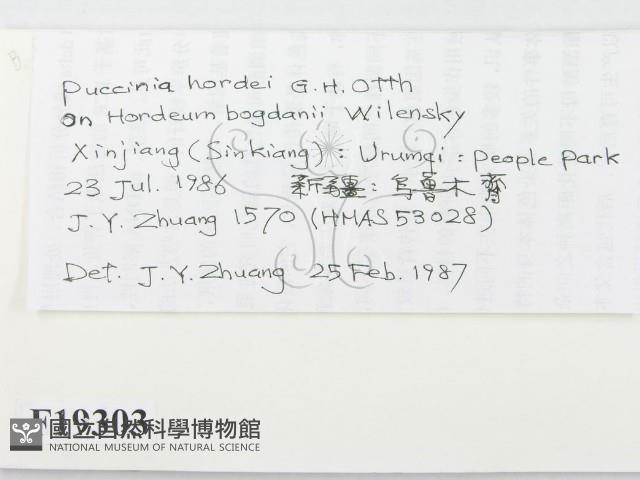 Puccinia hordei G.H. Otth
on Hordeum bogdanii Wilensky
Xinjiang (Sinkiang): Urumqi: People Park
23 Jul. 1986 新疆: 乌鲁木齊
J.Y. Zhuang 1570 (HMAS 53028)
Det. J.Y. Zhuang 25 Feb. 1987
F19303
國立自然科學博物館
NATIONAL MUSEUM OF NATURAL SCIENCE